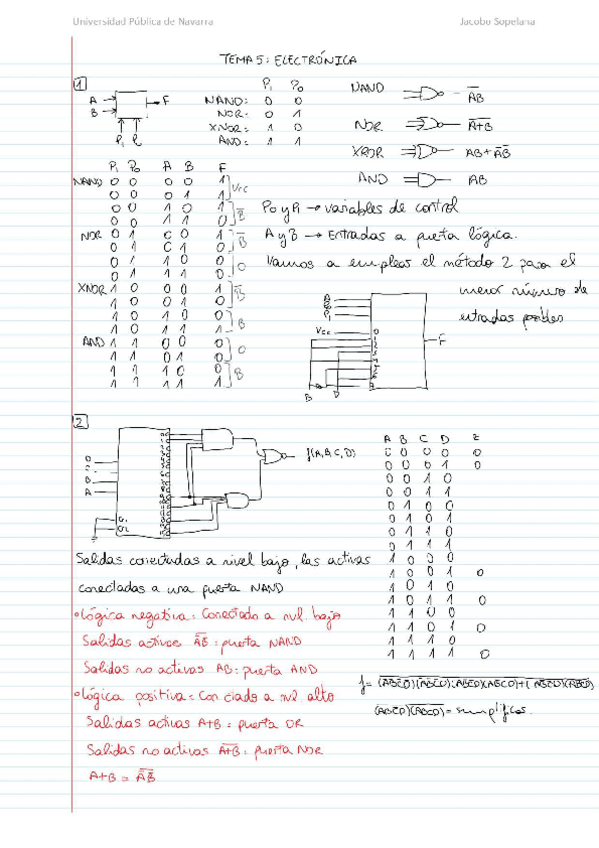 Universidad Pública de Navarra Jacobo Sopelana
TEMA 5: ELECTRÓNICA
1
A
B
F
P₁ P₀
NAND: 0 0
NOR: 0 1
XNOR: 1 0
AND: 1 1
NAND
NOR
XNOR
AND AB
P₁ P₀ A B F
NAND 0 0 0 0 1
0 0 0 1 1
Vcc
0 0 1 0 1
0 0 1 1 0
NOR 0 1 0 0 1
0 1 0 1 0
0 1 1 0 0
0 1 1 1 0
XNOR 1 0 0 0 1
1 0 0 1 0
1 0 1 0 0
1 0 1 1 1
AND 1 1 0 0 0
1 1 0 1 0
1 1 1 0 0
1 1 1 1 1
P₀ y P₁ → variables de control
A y B → Entradas a puerta lógica.
Vamos a emplear el método 2 para el
menor número de
entradas posibles
Vcc
F
B
2
f(A,B,C,D)
A B C D Z
0 0 0 0 0
0 0 0 1 0
0 0 1 0
0 0 1 1
0 1 0 0
0 1 0 1
0 1 1 0
0 1 1 1
1 0 0 0
1 0 0 1 0
1 0 1 0
1 0 1 1 0
1 1 0 0
1 1 0 1 0
1 1 1 0
1 1 1 1 0
Salidas conectadas a nivel bajo, las activas
conectadas a una puerta NAND
Lógica negativa: Conectado a nvl. bajo
Salidas activas A̅B̅: puerta NAND
Salidas no activas AB: puerta AND
Lógica positiva: Conectado a nvl alto
Salidas activas A+B: puerta OR
Salidas no activas A̅+̅B̅: puerta NOR